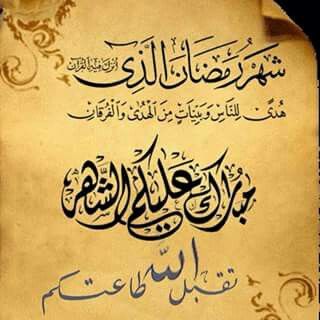 شَهْرُ رَمَضَانَ الَّذِي أُنزِلَ فِيهِ الْقُرْآنُ
هُدًى لِلنَّاسِ وَبَيِّنَاتٍ مِنَ الْهُدَىٰ وَالْفُرْقَانِ
مبارك عليكم الشهر
تقبل الله طاعتكم